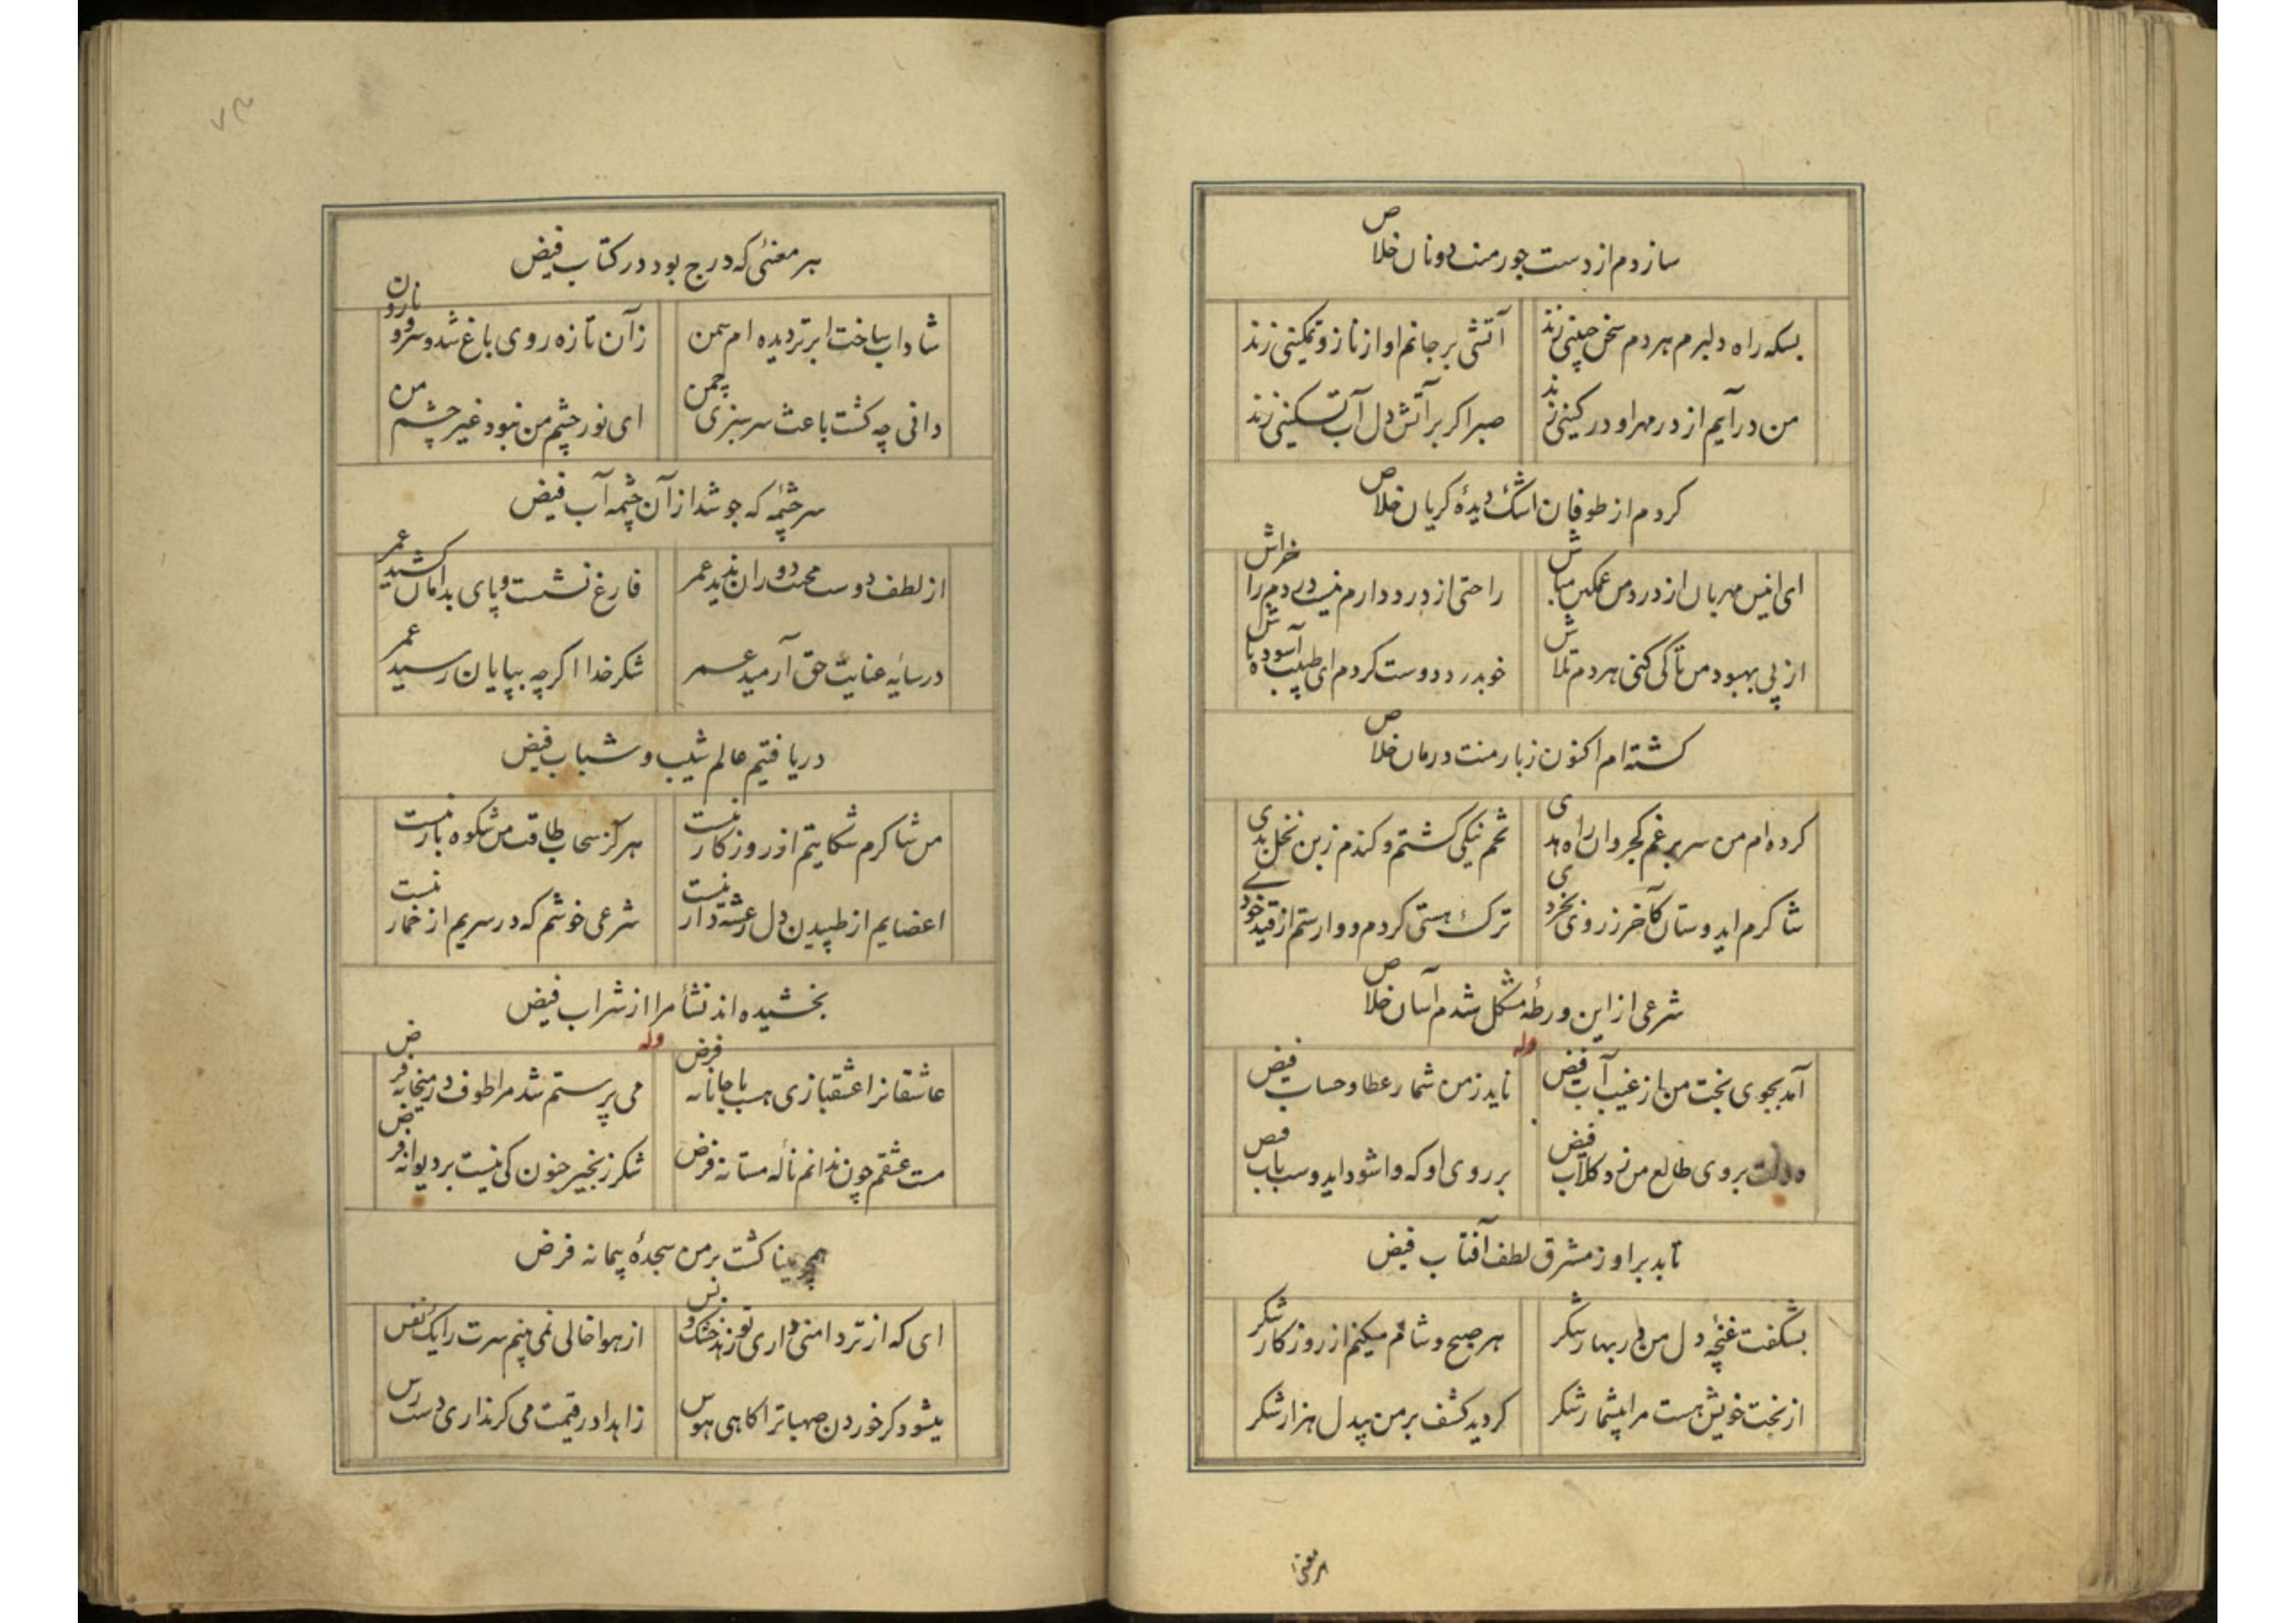 سازدم از دست جور منت دونان خلاص
بسکه راه دلبرم هر دم سخن چینی زند آتشی بر جانم او از ناز و تمکینی زند
من درآیم از در مهر او در کینی زند صبر اگر بر آتش دل آب تسکینی زند
کردم از طوفان اشک دیدهٔ کریان خلاص
ای انیس مهربان از درد من غمکین مباش راحتی از درد دارم نیست دردم را خراش
از پی بهبود من تا کی کنی هر دم تلاش خو بدرد دوست کردم ای طبیب آسوده باش
کشته ام اکنون ز بار منت درمان خلاص
کرده ام من سر بر غم کجروان راه بدی تخم نیکی کشتم و کندم ز بن نخل بدی
شاکرم ایدوستان کآخر ز روی بخردی ترک هستی کردم و وارستم از قید خودی
شرعی از این ورطهٔ مشکل شدم آسان خلاص
وله
آمد بجوی بخت من از غیب آب فیض ناید ز من شمار عطا و حساب فیض
دولت بروی طالع من زد کلاب فیض بر روی او که وا شود ایدوست باب فیض
تابد بر او ز مشرق لطف آفتاب فیض
بشکفت غنچهٔ دل من در بهار شکر هر صبح و شام میکنم از روزکار شکر
از بخت خویش هست مرا بیشمار شکر کردید کشف بر من بیدل هزار شکر
هر معنی
هر معنئی که درج بود در کتاب فیض
شاداب ساخت ابر تر دیده ام سمن زآن تازه روی باغ شد و سرو و نارون
دانی چه کشت باعث سرسبزی چمن ای نور چشم من نبود غیر چشم من
سرچشمهٔ که جوشد از آن چشمه آب فیض
از لطف دوست محنت دوران ندید عمر فارغ نشست و پای بدامان کشید عمر
در سایهٔ عنایت حق آرمید عمر شکر خدا اکرچه بپایان رسید عمر
دریافتیم عالم شیب و شباب فیض
من شاکرم شکایتم از روزکار نیست هرکز سحاب طاقت من شکوه بار نیست
اعضایم از طپیدن دل رعشه دار نیست شرعی خوشم که در سریم از خمار نیست
بخشیده اند نشأ مرا از شراب فیض
وله
عاشقانرا عشقبازی هست با جانانه فرض می پرستم شد مرا طوف در میخانه فرض
مست عشقم چون ندانم نالهٔ مستانه فرض شکر زنجیر جنون کی نیست بر دیوانه فرض
همچو مینا کشت بر من سجدهٔ پیمانه فرض
ای که از تر دامنی داری تو زهد خشک و بس از هوا خالی نمی بینم سرت را یک نفس
میشود کر خوردن صهبا ترا کاهی هوس زاهدا در قیمت می کر نداری دست رس
۷۳